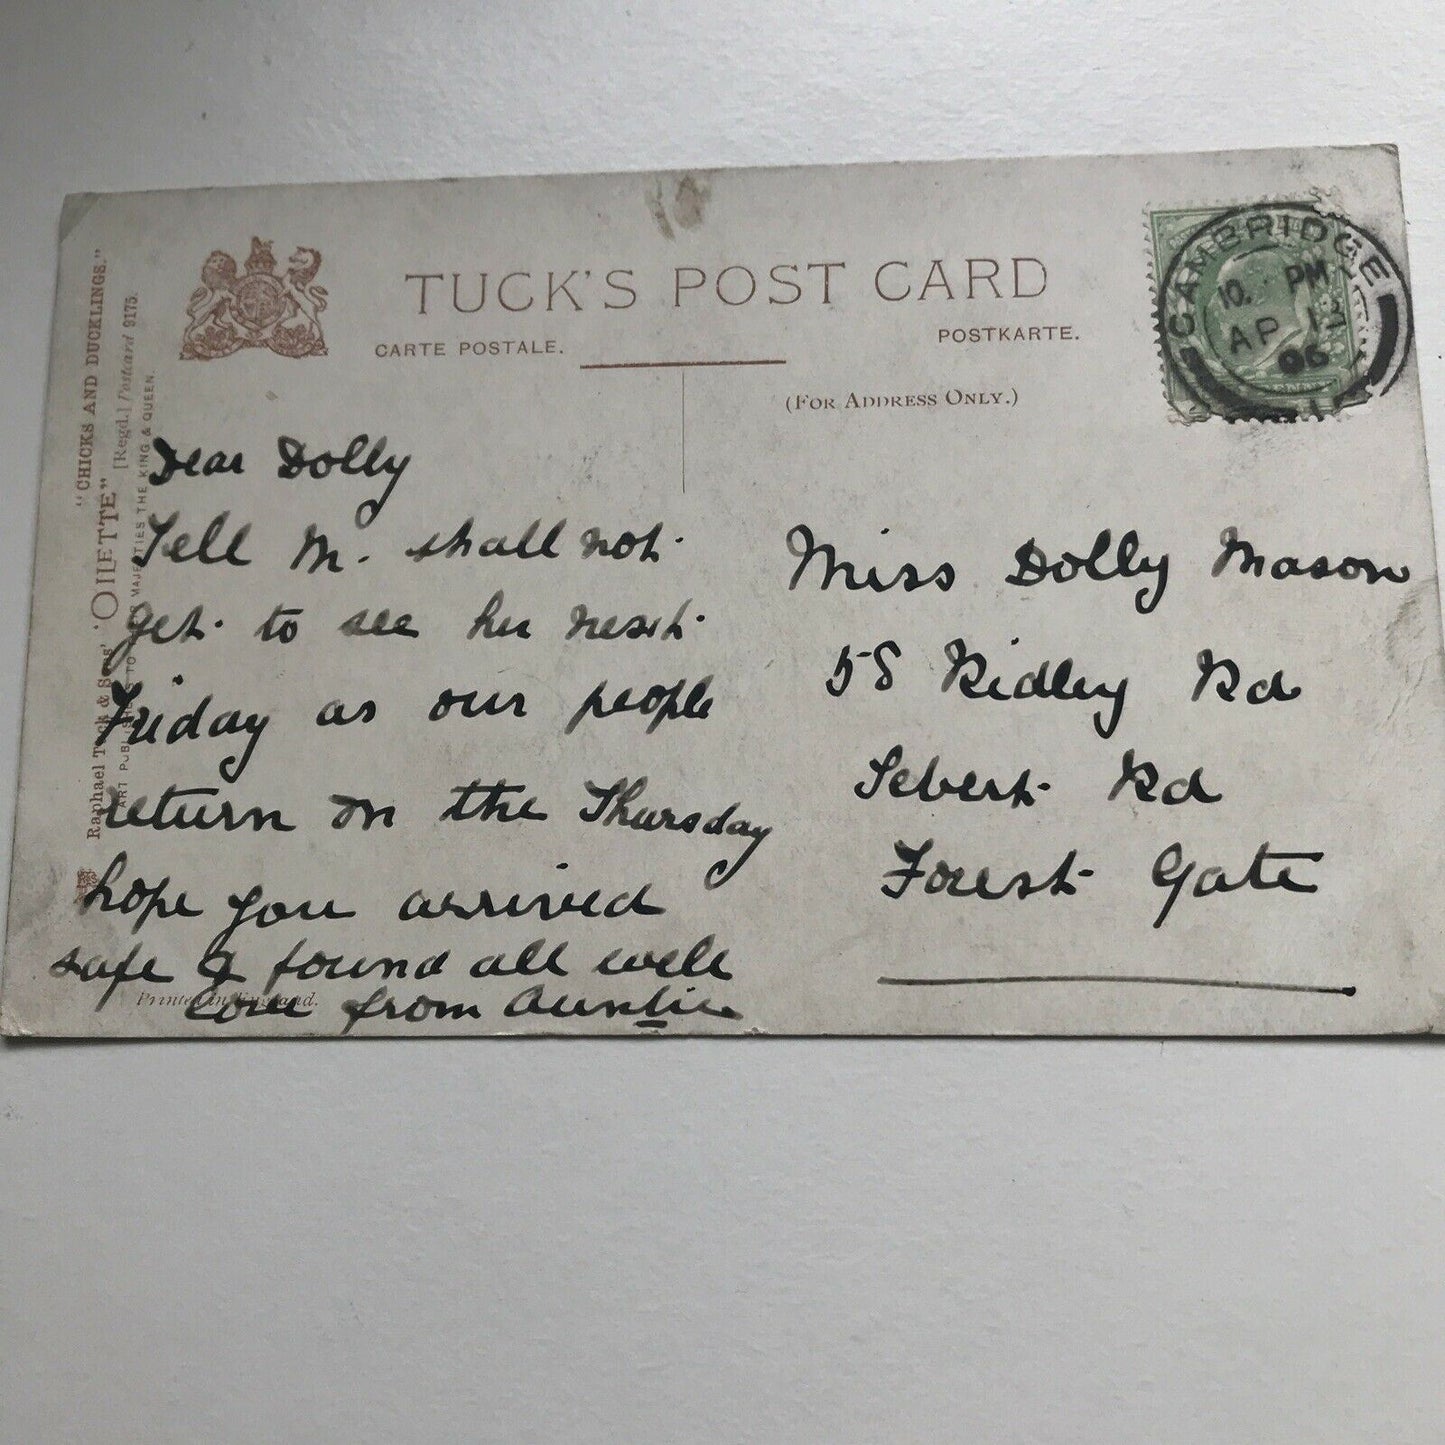 TUCK'S POST CARD
CARTE POSTALE.
POSTKARTE.
(FOR ADDRESS ONLY.)
CAMBRIDGE
10. PM
AP 13
06
"CHICKS AND DUCKLINGS."
[Regd.] Postcard 9175.
Raphael Tuck & Sons' "OILETTE"
MAJESTIES THE KING & QUEEN.
Dear Dolly
Tell M. shall not
get to see her next
Friday as our people
return on the Thursday
hope you arrived
safe & found all well
love from Auntie
Printed in England.
Miss Dolly Mason
58 Ridley Rd
Sebert Rd
Forest Gate